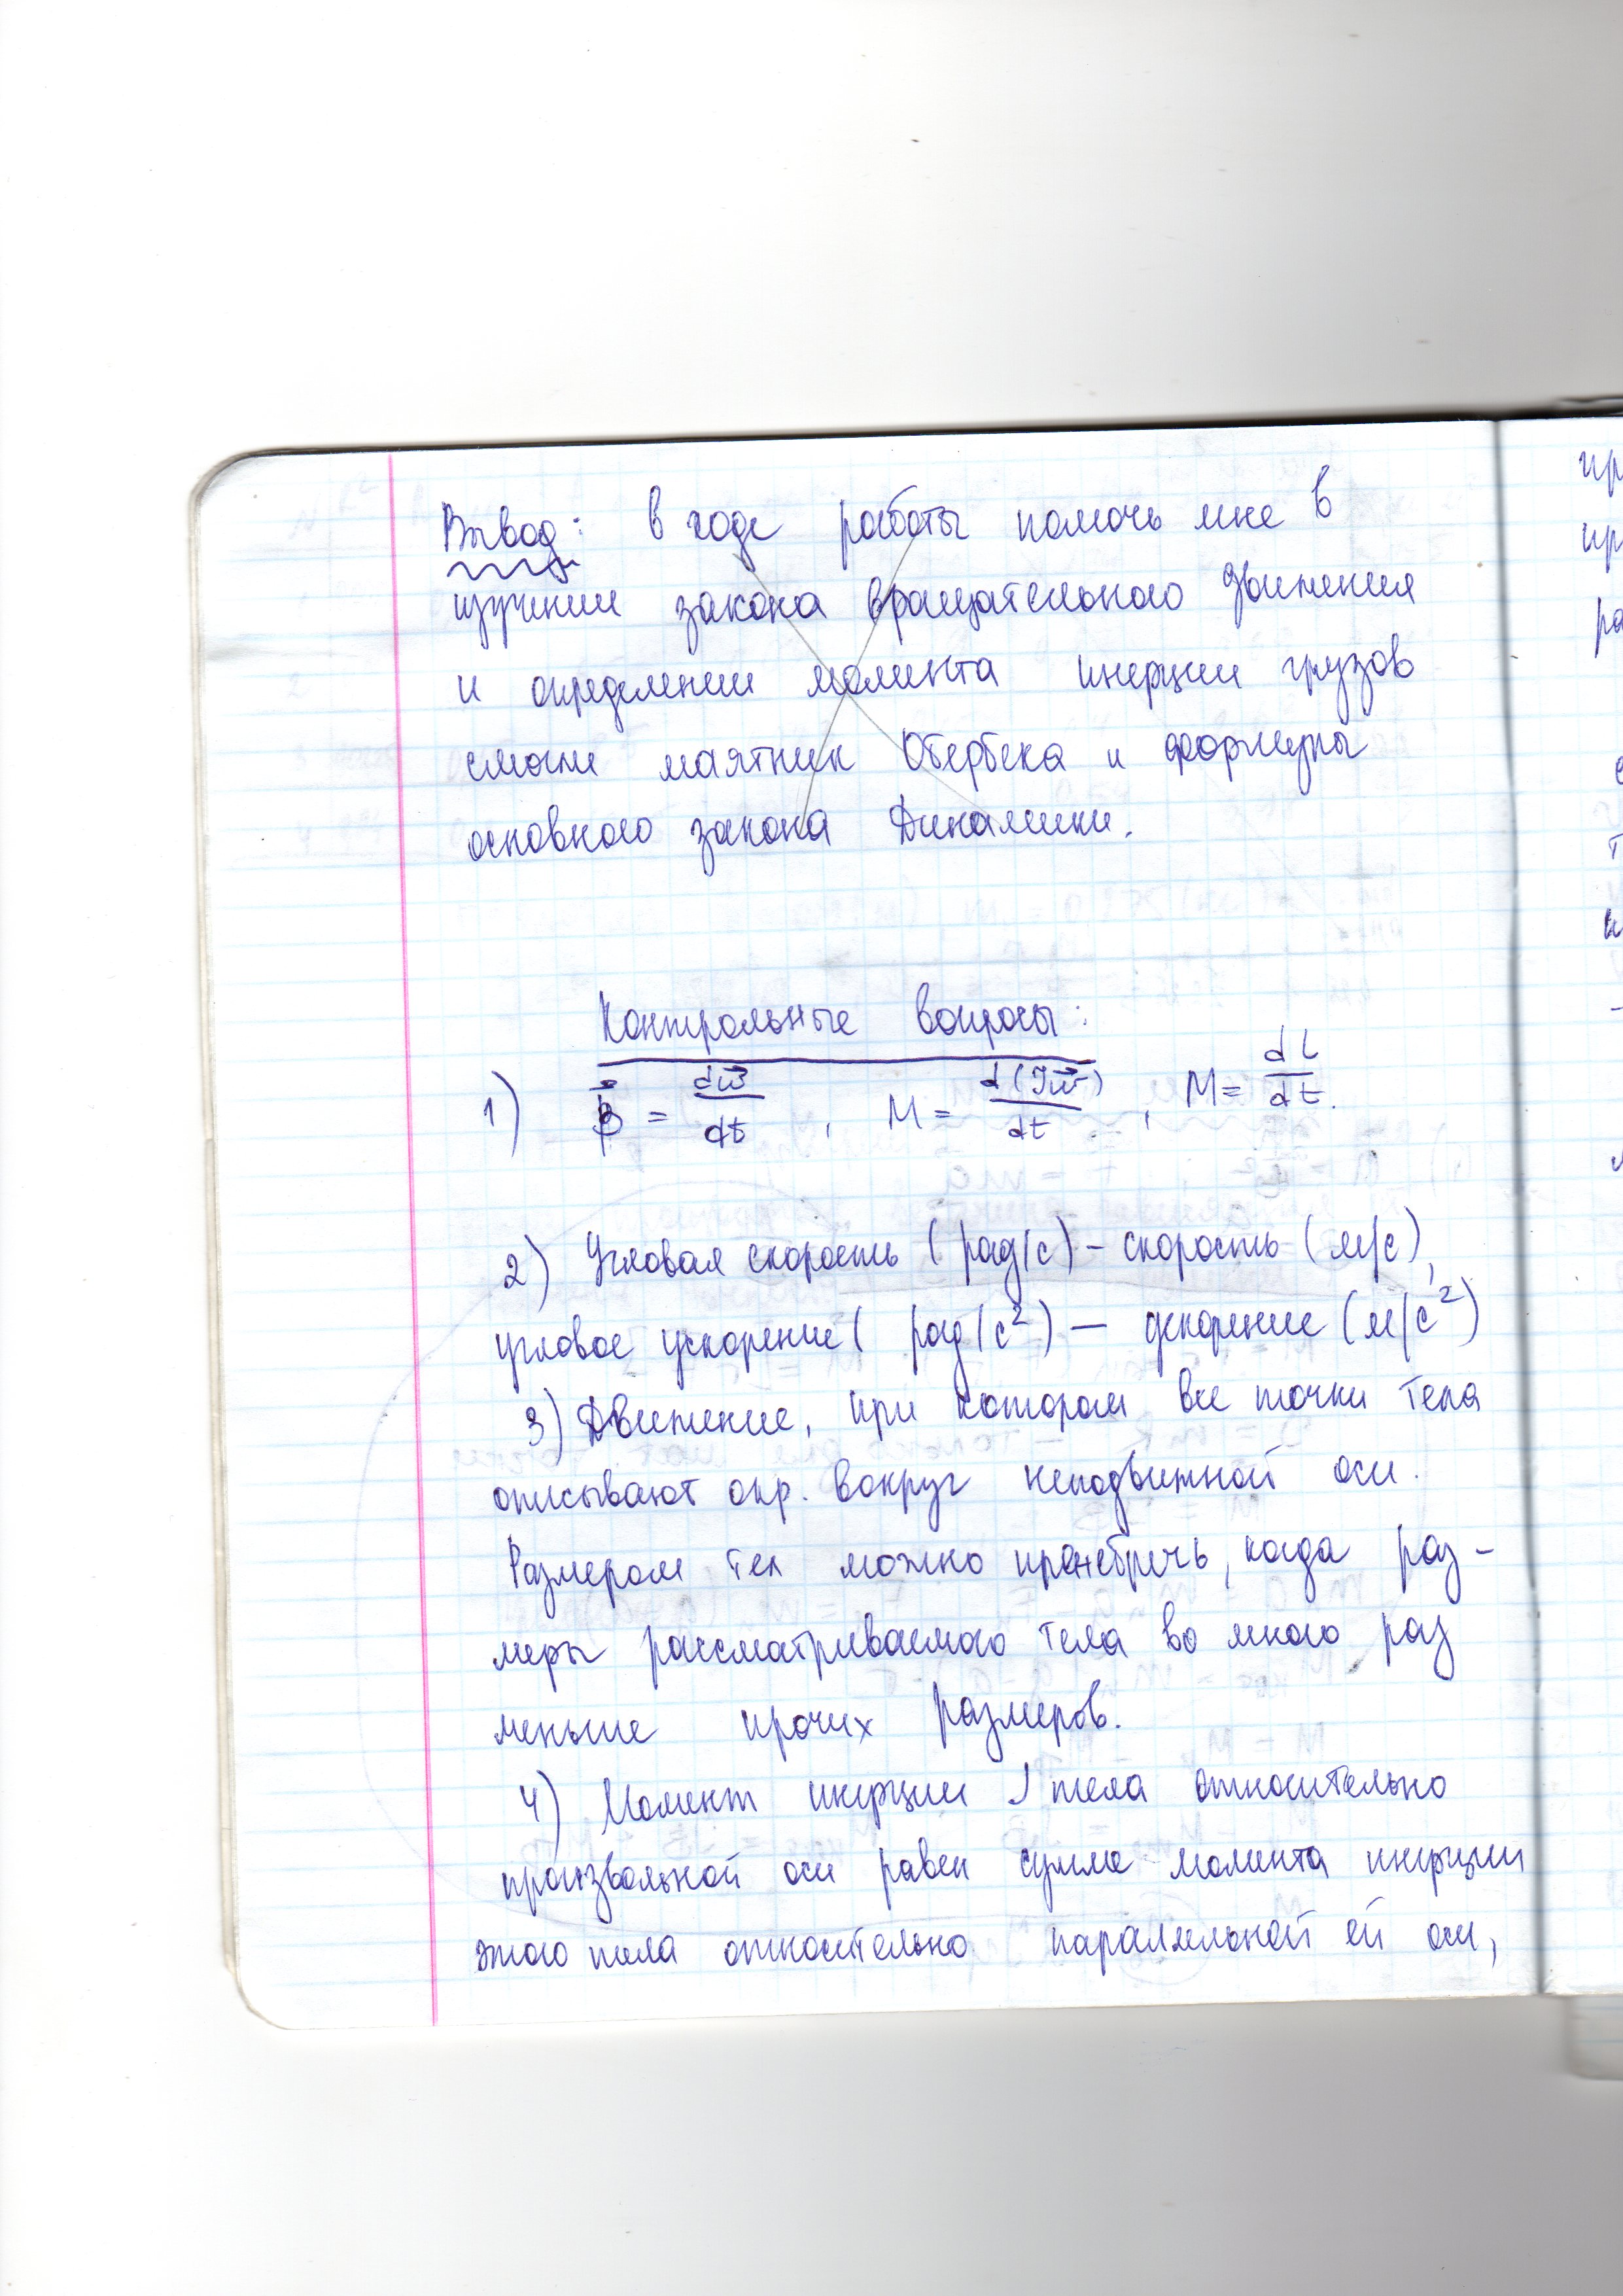 Вывод: в ходе работы помочь мне в
изучении закона вращательного движения
и определении момента инерции грузов
смогли маятник Обербека и формулы
основного закона Динамики.
Контрольные вопросы:
1) β⃗ = dω⃗/dt , M = d(Jω⃗)/dt , M = dL/dt.
2) Угловая скорость (рад/с) – скорость (м/с),
угловое ускорение (рад/с²) — ускорение (м/с²)
3) Движение, при котором все точки тела
описывают окр. вокруг неподвижной оси.
Размером тел можно пренебречь, когда раз-
меры рассматриваемого тела во много раз
меньше прочих размеров.
4) Момент инерции J тела относительно
произвольной оси равен сумме момента инерции
этого тела относительно параллельной ей оси,